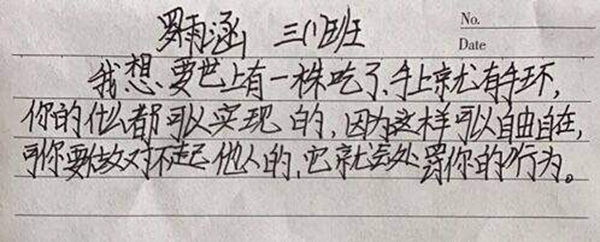 罗雨涵 三(1)班
No.
Date
我想要世上有一株吃了、手上就有手环,
你的什么都可以实现的,因为这样可以自由自在,
可你要做对不起他人的,它就会处罚你的行为。